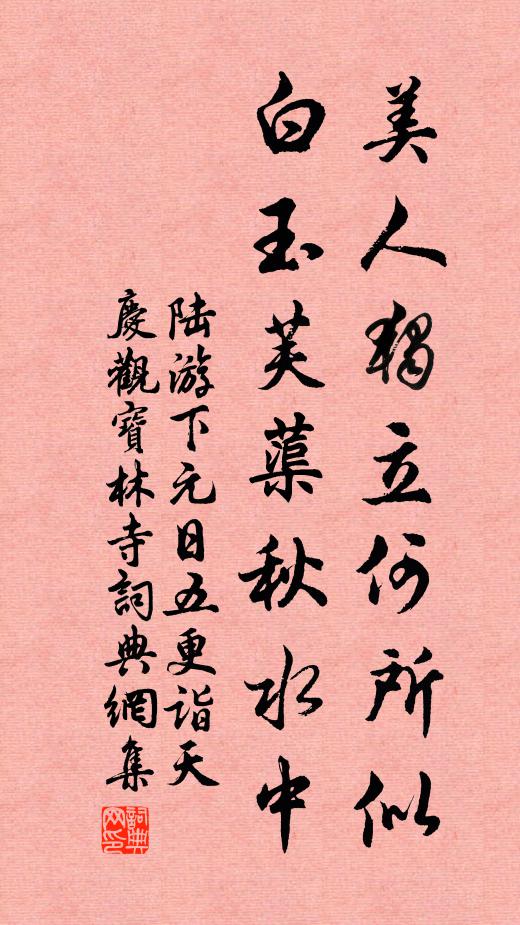 美人獨立何所似
白玉芙蕖秋水中
陆游下元日五更詣天
慶觀寶林寺詞典網集
詞典网印